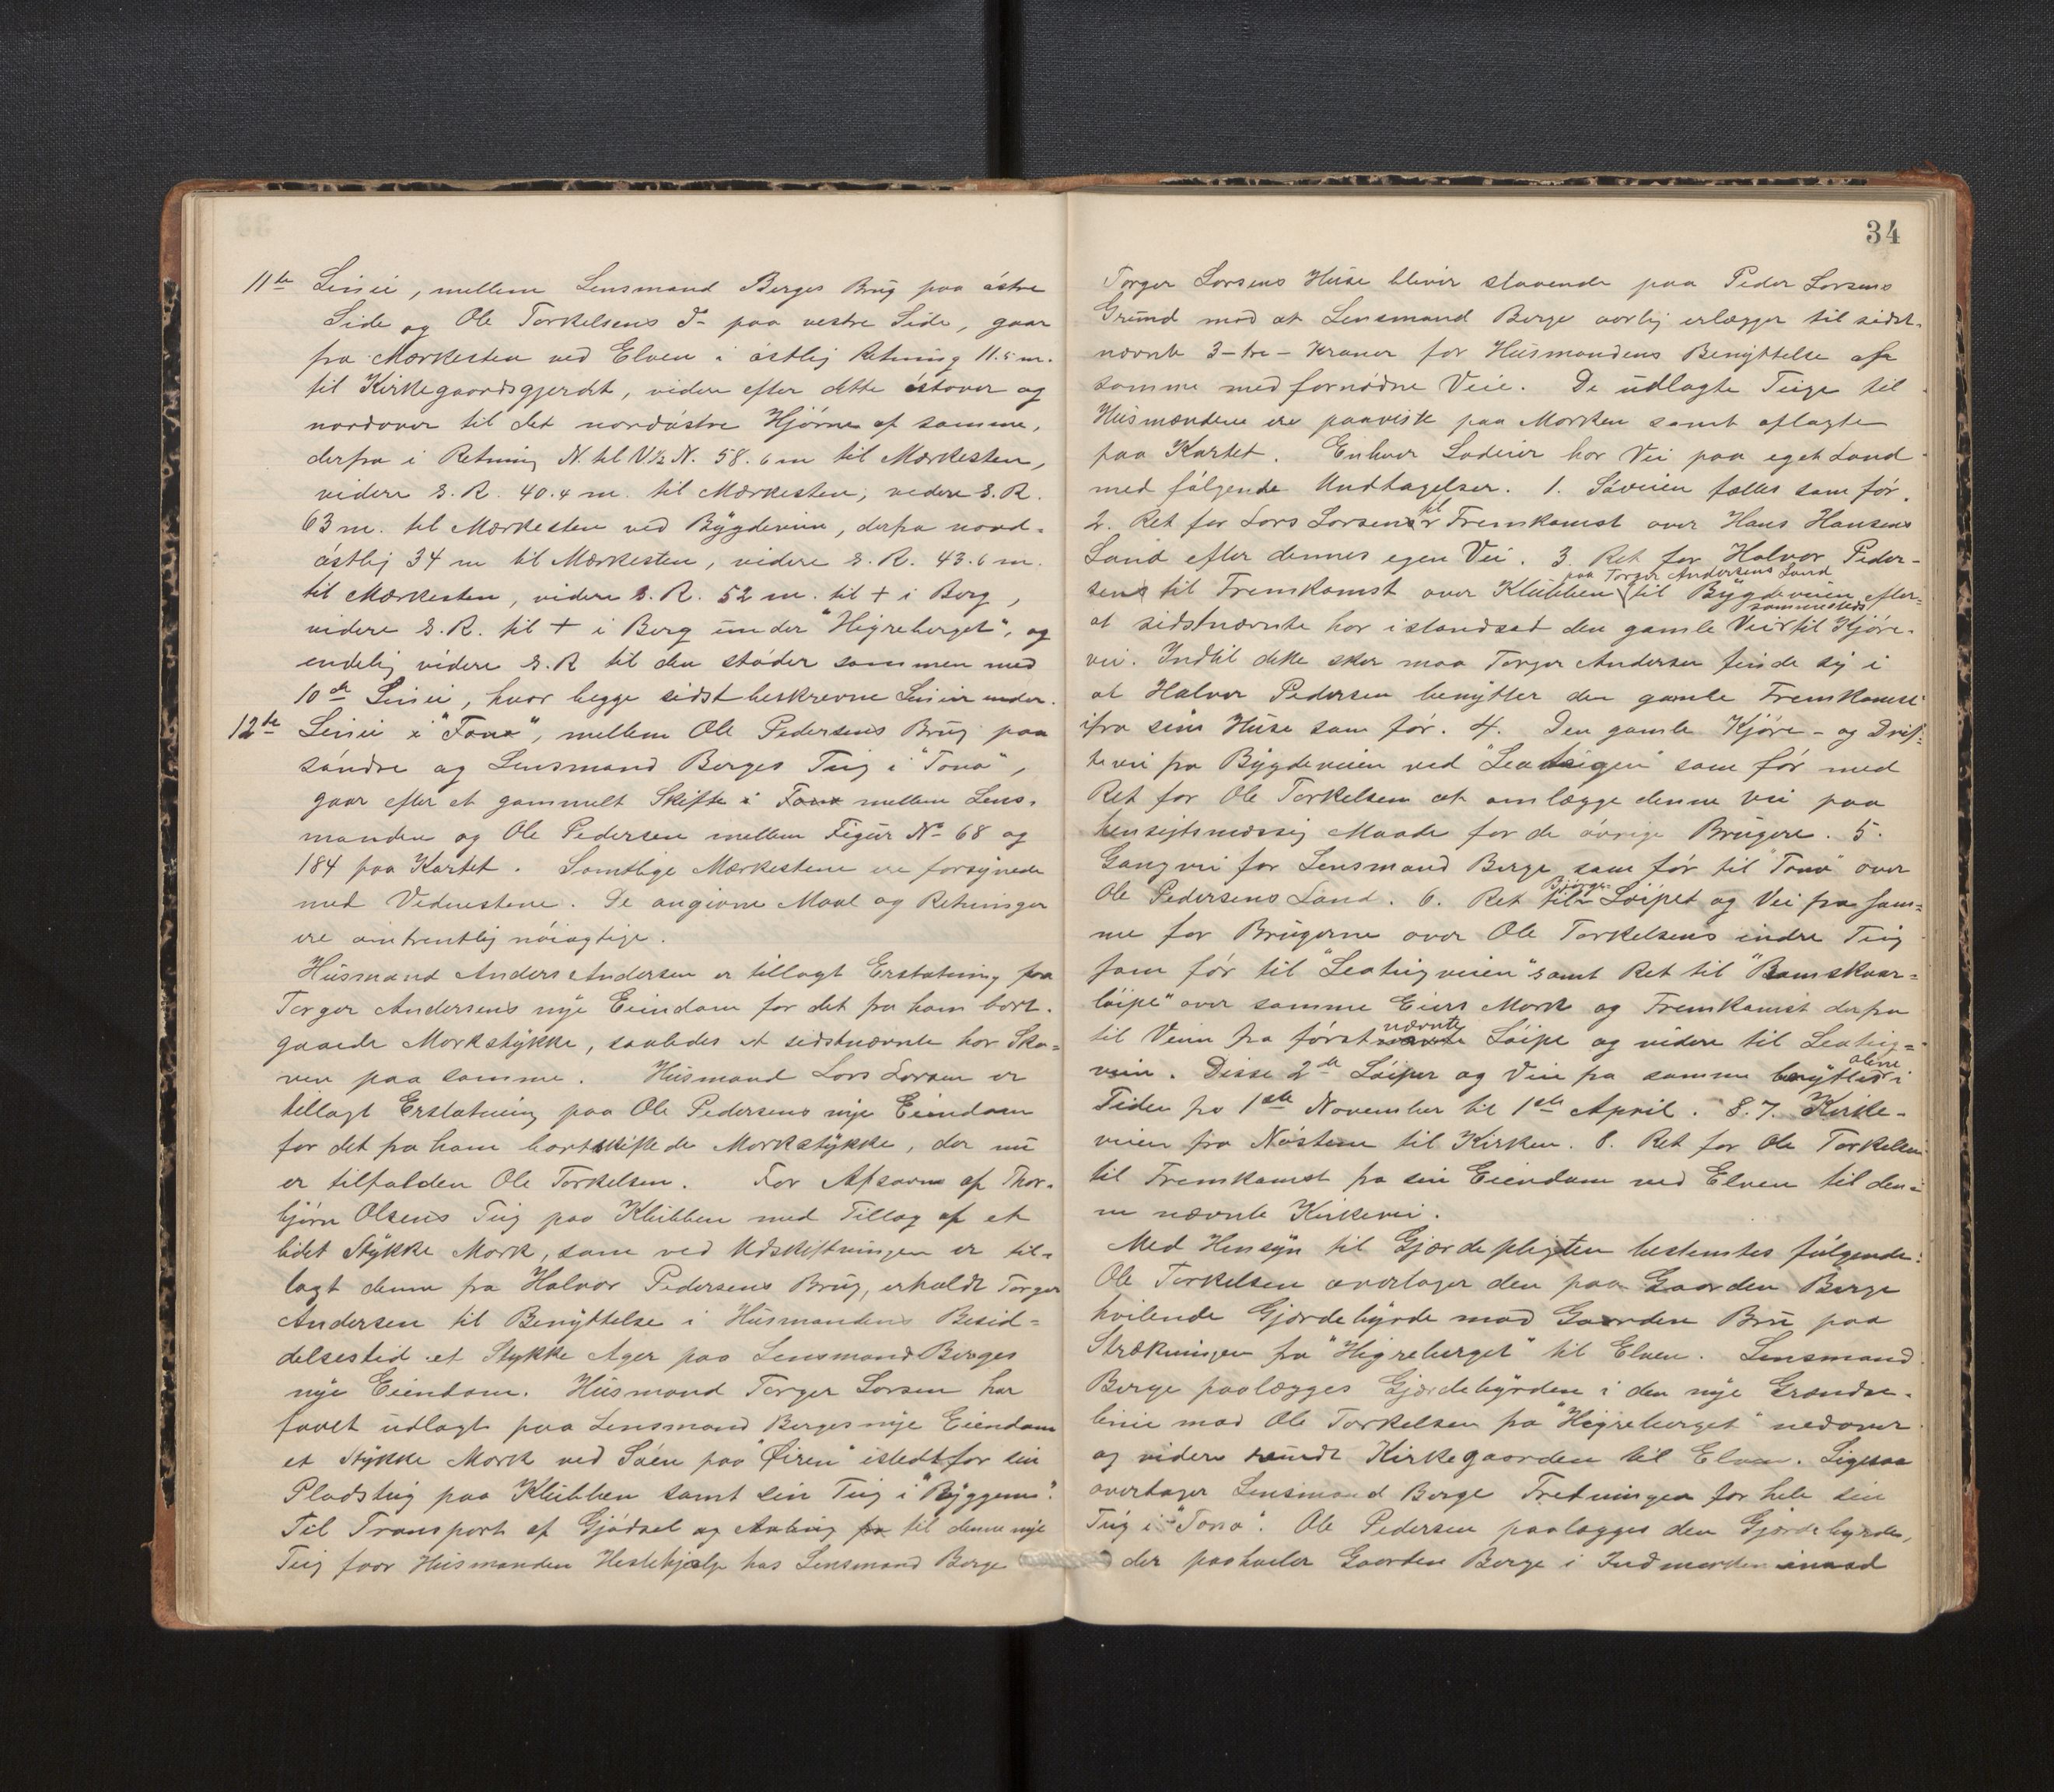 11te Linie, mellem Lensmand Berges Brug paa østre
Side og Ole Torkelsens do paa vestre Side, gaar
fra Mærkesten ved Elven i østlig Retning 11.5 m.
til Kirkegaardsgjerdet, videre efter dette østover og
nordover til det nordøstre Hjørne af samme,
derfra i Retning N. til V½N. 58.6 m til Mærkesten,
videre s. R. 40.4 m. til Mærkesten, videre s. R.
63 m. til Mærkesten ved Bygdeveien, derfra nord-
østlig 34 m til Mærkesten, videre s. R. 43.6 m.
til Mærkesten, videre s. R. 52 m. til + i Berg,
videre s. R. til + i Berg under "Higreberget", og
endelig videre s. R til den støder sammen med
10de Linie, hvor begge sidst beskrevne Linier ender.
12te Linie i "Tona", mellem Ole Pedersens Brug paa
søndre og Lensmand Berges Teig i "Tona",
gaar efter et gammelt Skifte i Tona mellem Lens-
manden og Ole Pedersen mellem Figur No 68 og
184 paa Kartet. Samtlige Mærkestene ere forsynede
med Vidnestene. De angivne Maal og Retninger
ere omtrentlig nøiagtige.
Husmand Anders Andersen er tillagt Erstatning paa
Torger Andersens nye Eiendom for det fra ham bort-
gaaede Markstykke, saaledes at sidstnævnte har Sko-
ven paa samme. Husmand Lars Larsen er
tillagt Erstatning paa Ole Pedersens nye Eiendom
for det fra ham bortskiftede Markstykke, der nu
er tilfalden Ole Torkelsen. For Afsavn af Thor-
bjørn Olsens Teig paa Klubben med Tillæg af et
lidet Stykke Mark, som ved Udskiftningen er til-
lagt denne fra Halvor Pedersens Brug, erholdt Torger
Andersen til Benyttelse i Husmandens Besid-
delsestid et Stykke Ager paa Lensmand Berges
nye Eiendom. Husmand Torger Larsen har
faaet udlagt paa Lensmand Berges nye Eiendom
et Stykke Mark ved Søen paa "Øiren" istedtfor sin
Pladsteig paa Klubben samt sin Teig i "Byggene".
Til Transport af Gjødsel og Avling fra til denne nye
Teig faar Husmanden Hestehjælp hos Lensmand Berge
34
Torger Larsens Huse blive staaende paa Peder Larsens
Grund mod at Lensmand Berge aarlig erlægger til sidst-
nævnte 3-tre-Kroner for Husmandens Benyttelse af
samme med fornødne Veie. De udlagte Teige til
Husmændene ere paaviste paa Marken samt aflagte
paa Kartet. Enhver Lodeier har Vei paa eget Land
med følgende Undtagelser. 1. Søveien fælles som før.
2. Ret for Lars Larsen til Fremkomst over Hans Hansens
Land efter dennes egen Vei. 3. Ret for Halvor Peder-
sen til Fremkomst over Klubben paa Torger Andersens Land til Bygdeveien efter-
at sidstnævnte har istandsat den gamle Vei sammesteds til Kjøre-
vei. Indtil dette sker maa Torger Andersen finde sig i
at Halvor Pedersen benytter den gamle Fremkomst
ifra sine Huse som før. 4. Den gamle Kjøre- og Drif-
tevei fra Bygdeveien ved "Leateigen" som før med
Ret for Ole Torkelsen at omlægge denne Vei paa
hensigtsmæssig Maade for de øvrige Brugere. 5.
Gangvei for Lensmand Berge som før til "Tona" over
Ole Pedersens Land. 6. Ret til Bjørge- Løipet og Vei fra sam-
me for Brugerne over Ole Torkelsens indre Teig
som før til "Leateigveien" samt Ret til "Bamskaar-
løipe" over samme Eiers Mark og Fremkomst derfra
til Veien fra førstnævnte Løipe og videre til Leateig-
veien. Disse 2de Løiper og Vei fra samme benyttes alene i
Tiden fra 1ste November til 1ste April. 7. Kirke-
veien fra Nøstene til Kirken. 8. Ret for Ole Torkelsen
til Fremkomst fra sin Eiendom ved Elven til den-
ne nævnte Kirkevei.
Med Hensyn til Gjærdepligten bestemtes følgende:
Ole Torkelsen overtager den paa Gaarden Berge
hvilende Gjærdebyrde mod Gaarden Bru paa
Strækningen fra "Higreberget" til Elven. Lensmand
Berge paalægges Gjærdebyrden i den nye Grændse-
linie mod Ole Torkelsen fra "Higreberget" nedover
og videre rundt Kirkegaarden til Elven. Ligesaa
overtager Lensmand Berge Fredningen for hele sin
Teig i "Tona". Ole Pedersen paalægges den Gjærdebyrde,
der paahviler Gaarden Berge i Indmarken imod